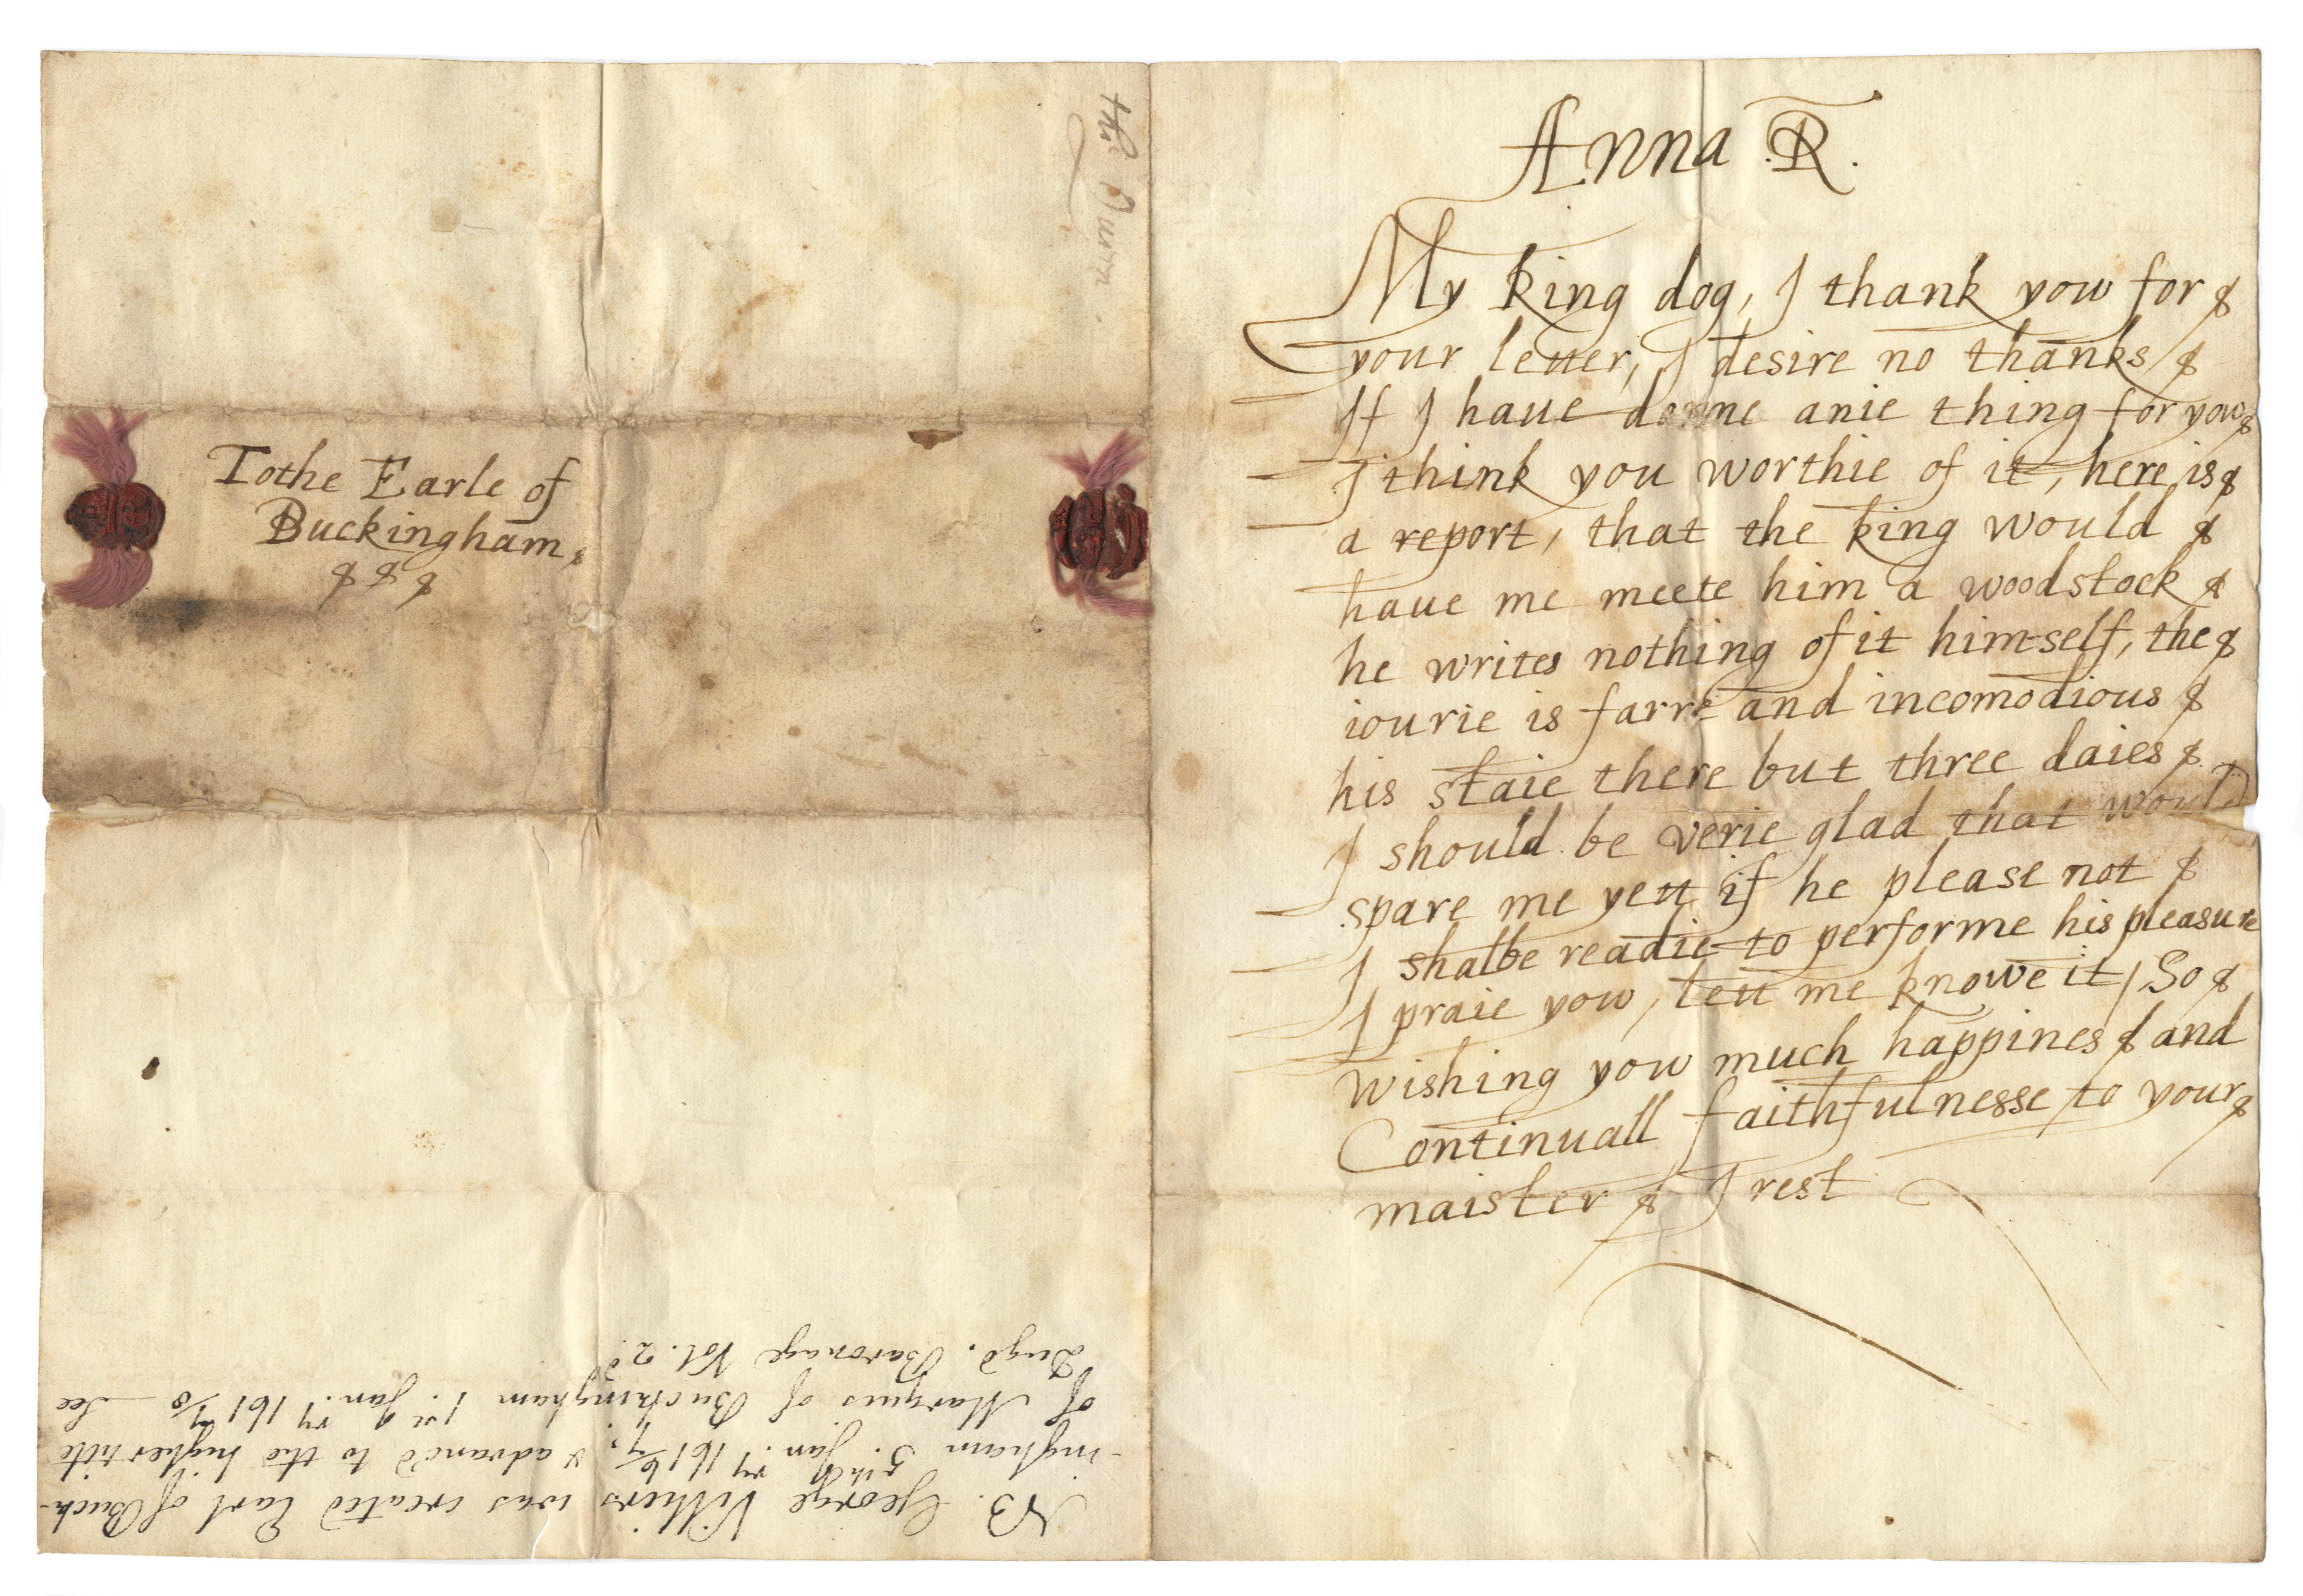 the Queen
Tothe Earle of
Buckingham,
Anna R.
My king dog, I thank yow for
your letter, I desire no thanks
If I haue donne anie thing for yow
I think you worthie of it, here is
a report, that the king would
haue me meete him a woodstock
he writes nothing of it himself, the
iourie is farre and incomodious
his staie there but three daies
I should be verie glad that would
spare me yett if he please not
I shalbe readie to performe his pleasure
I praie yow, lett me knowe it / So
wishing yow much happines and
Continuall faithfulnesse to your
maister I rest
NB. George Villiers was created Earl of Buck-
-ingham 5th Jan.ry 1616/7, & advanc'd to the higher title
of Marquis of Buckingham 1st Jan.ry 1617/8 See
Dugd. Baronage Vol. 2d.